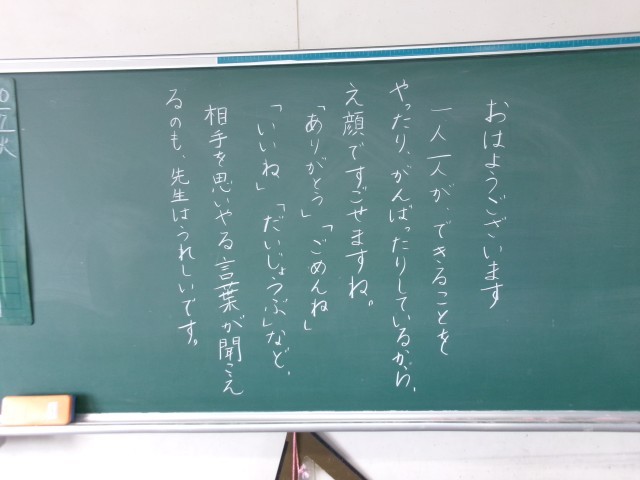 おはようございます
一人一人が、できることを
やったり、がんばったりしているから、
え顔ですごせますね。
「ありがとう」「ごめんね」
「いいね」「だいじょうぶ」など、
相手を思いやる言葉が聞こえ
るのも、先生はうれしいです。
火